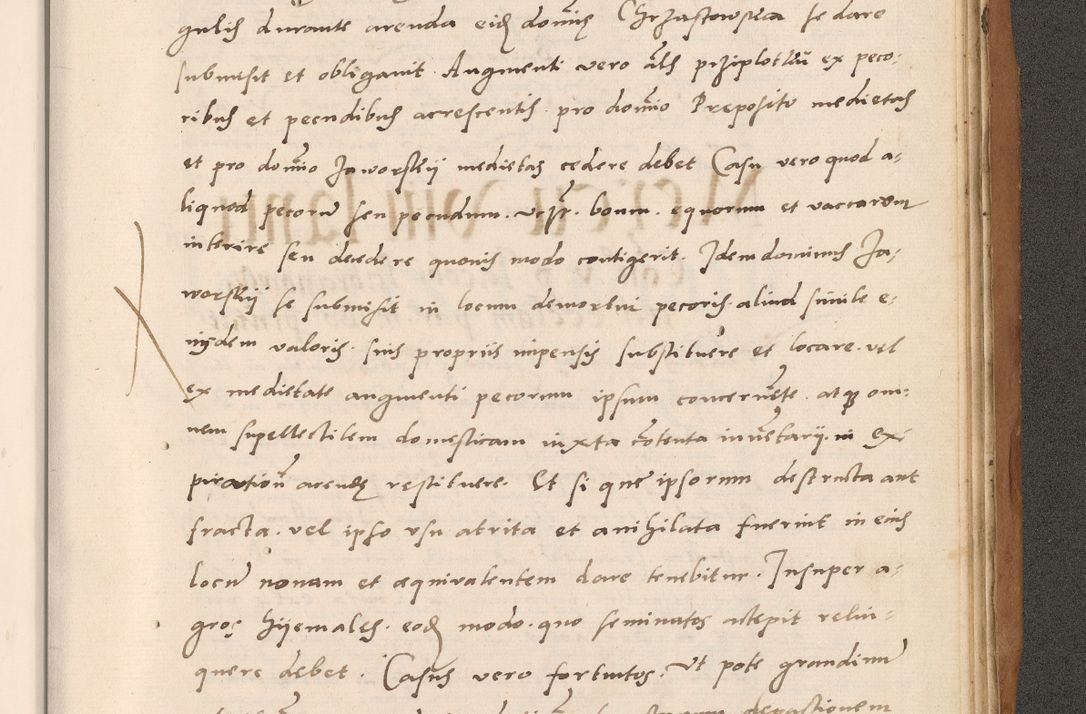 gulis durante arenda eidē domīs Chrząstowska se dare
submisit et obligavit. Augmenti vero als przÿplotku ex peco-
ribus et pecudibus acrescentis. pro domīo Preposito medietas
et pro domīo Jaworskÿ medietas cedere debet Casu vero quod a-
liquod pecorum seu pecudum. boum. equorum et vaccarum
interire seu decedere quovis modo contigerit. Idem dominus Ja-
worskÿ se submisit in locum demortui pecoris. aliud simile e-
iusdem valoris. suis propriis impensis substituere et locare. vel
ex medietate augmenti pecorum ipsum concernēte. atq3 om-
nem supellectilem domesticam iuxta cōtenta invētarÿ. in ex-
piration arendę restituere. Et si que ipsorum destructa aut
fracta. vel ipso usu atrita et anihilata fuerint in eius
locum novam et æquivalentem dare tenebitur. Insuper a-
gros hÿemales. eodē modo. quo seminatos accepit relin-
quere debet. Casus vero fortuitos. Ut pote grandinum
depactionem